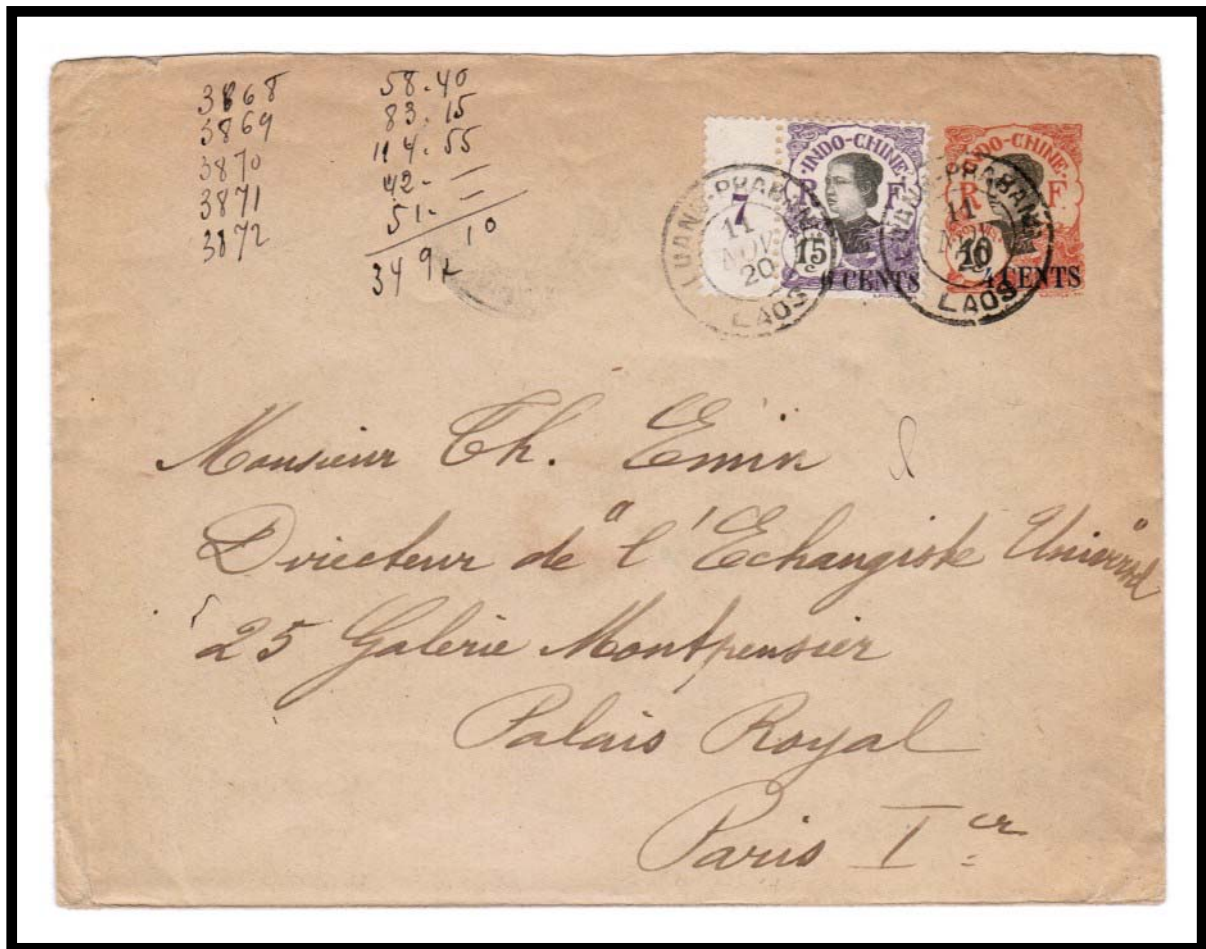 3868 58.40
3869 83.15
3870 114.55
3871 42.—
3872 51.—
349 10
7
INDO-CHINE
R F
15
6 CENTS
LUANG-PRABANG
11
NOV
20
LAOS
INDO-CHINE
R F
10
4 CENTS
LUANG-PRABANG
11
NOV
20
LAOS
Monsieur Th. Emin
Directeur de "l'Echangiste Universel"
25 Galerie Montpensier
Palais Royal
Paris Ier